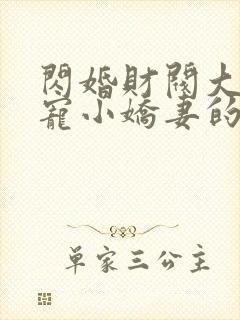 閃婚財閥大
寵小嬌妻的
單家三公主